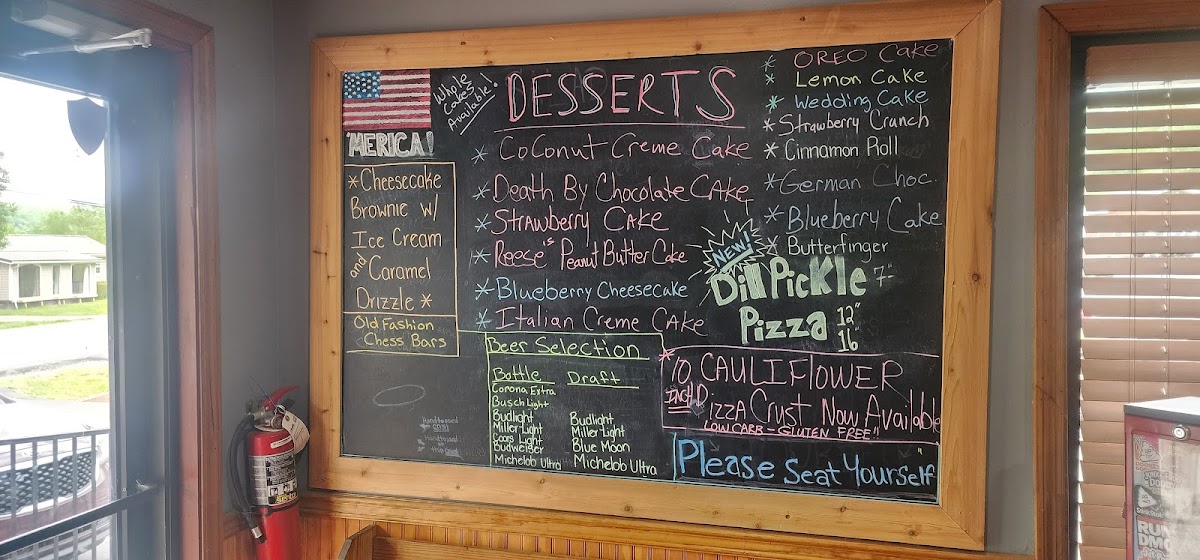 'MERICA!
Whole
Cakes
Available!
DESSERTS
* Coconut Creme Cake
* Death By Chocolate Cake
* Strawberry Cake
* Reese's Peanut Butter Cake
* Blueberry Cheesecake
* Italian Creme Cake
* OREO Cake
* Lemon Cake
* Wedding Cake
* Strawberry Crunch
* Cinnamon Roll
* German Choc.
* Blueberry Cake
* Butterfinger
* Cheesecake
Brownie w/
Ice Cream
and Caramel
Drizzle *
Old Fashion
Chess Bars
NEW!
Dill Pickle 7"
Pizza 12"
16"
Beer Selection
Bottle
Corona Extra
Busch Light
Budlight
Miller Light
Coors Light
Budweiser
Michelob Ultra
Draft
Budlight
Miller Light
Blue Moon
Michelob Ultra
*10 INCH CAULIFLOWER
Pizza Crust Now Available
LOW CARB - GLUTEN FREE!!
Please Seat Yourself
RUN
DMC